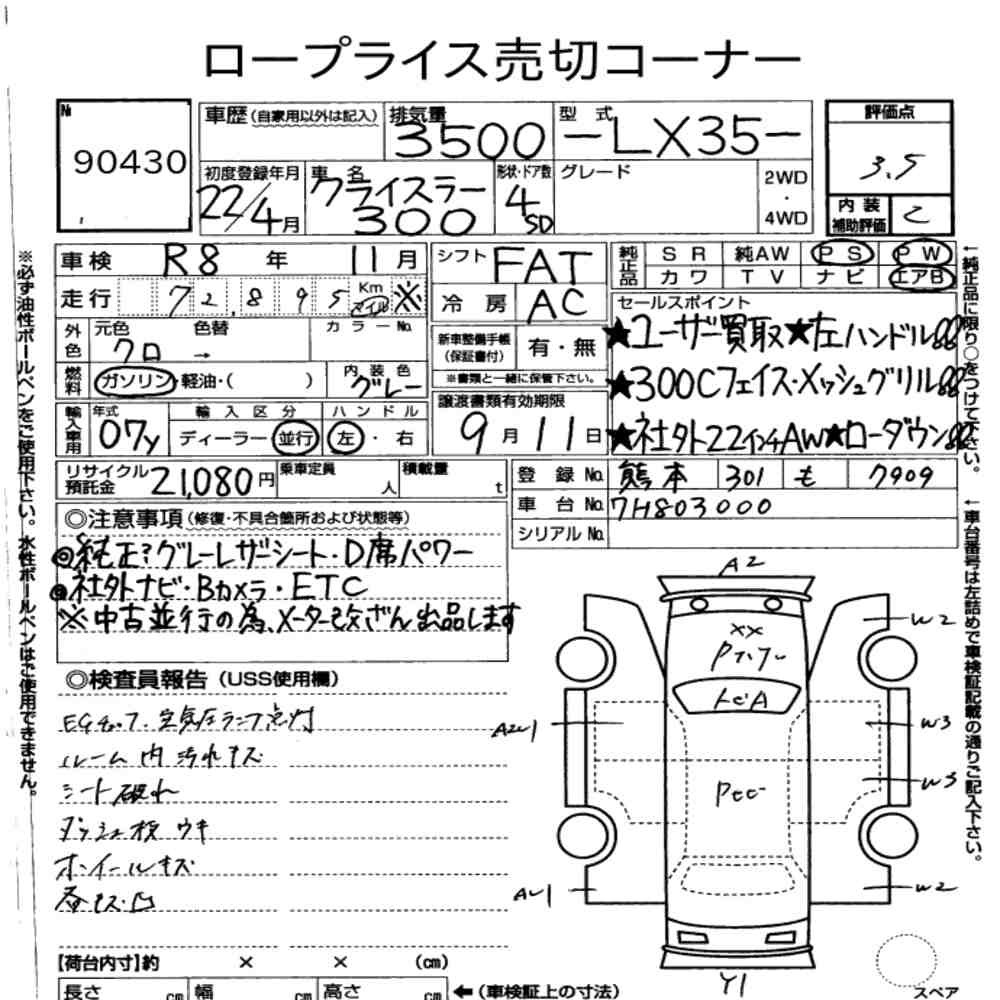 ロープライス売切コーナー
№ 90430
車歴(自家用以外は記入)
排気量 3500
型式 -LX35-
評価点 3.5
初度登録年月 22/4月
車名 クライスラー 300
形状・ドア数 4 SD
グレード
2WD・4WD
内装補助評価 C
車検 R8年 11月
シフト FAT
純正品 SR 純AW PS PW
カワ TV ナビ エアB
走行 72,895 Km マイル ※
冷房 AC
セールスポイント
★ユーザー買取★左ハンドル!!
★300Cフェイス・メッシュグリル!!
★社外22インチAW★ローダウン!!
外色 元色 クロ 色替 → カラーNo.
新車整備手帳(保証書付) 有・無
※書類と一緒に保管下さい。
燃料 ガソリン・軽油・( )
内装色 グレー
譲渡書類有効期限 9月11日
輸入車用 年式 07y
輸入区分 ディーラー・並行
ハンドル 左・右
リサイクル預託金 21,080円
乗車定員 人
積載量 t
登録No. 熊本 301 も 7909
車台No. 7H803000
シリアルNo.
◎注意事項(修復・不具合箇所および状態等)
◎純正?グレーレザーシート・D席パワー
◎社外ナビ・Bカメラ・ETC
※中古並行の為、メーター改ざん出品します
◎検査員報告(USS使用欄)
EGチェック、空気圧ランプ点灯
ルーム内汚れキズ
シート破れ
ダッシュ板ウキ
ホイールキズ
キズ・凹
【荷台内寸】約 × × (cm)
長さ cm 幅 cm 高さ cm ←(車検証上の寸法)
A2
W2
XX
A2U1
W3
W3
AU1
W2
Y1
スペア
※必ず油性ボールペンをご使用下さい。水性ボールペンはご使用できません。
←純正品に限り○をつけて下さい。
←車台番号は左詰めで車検証記載の通りご記入下さい。